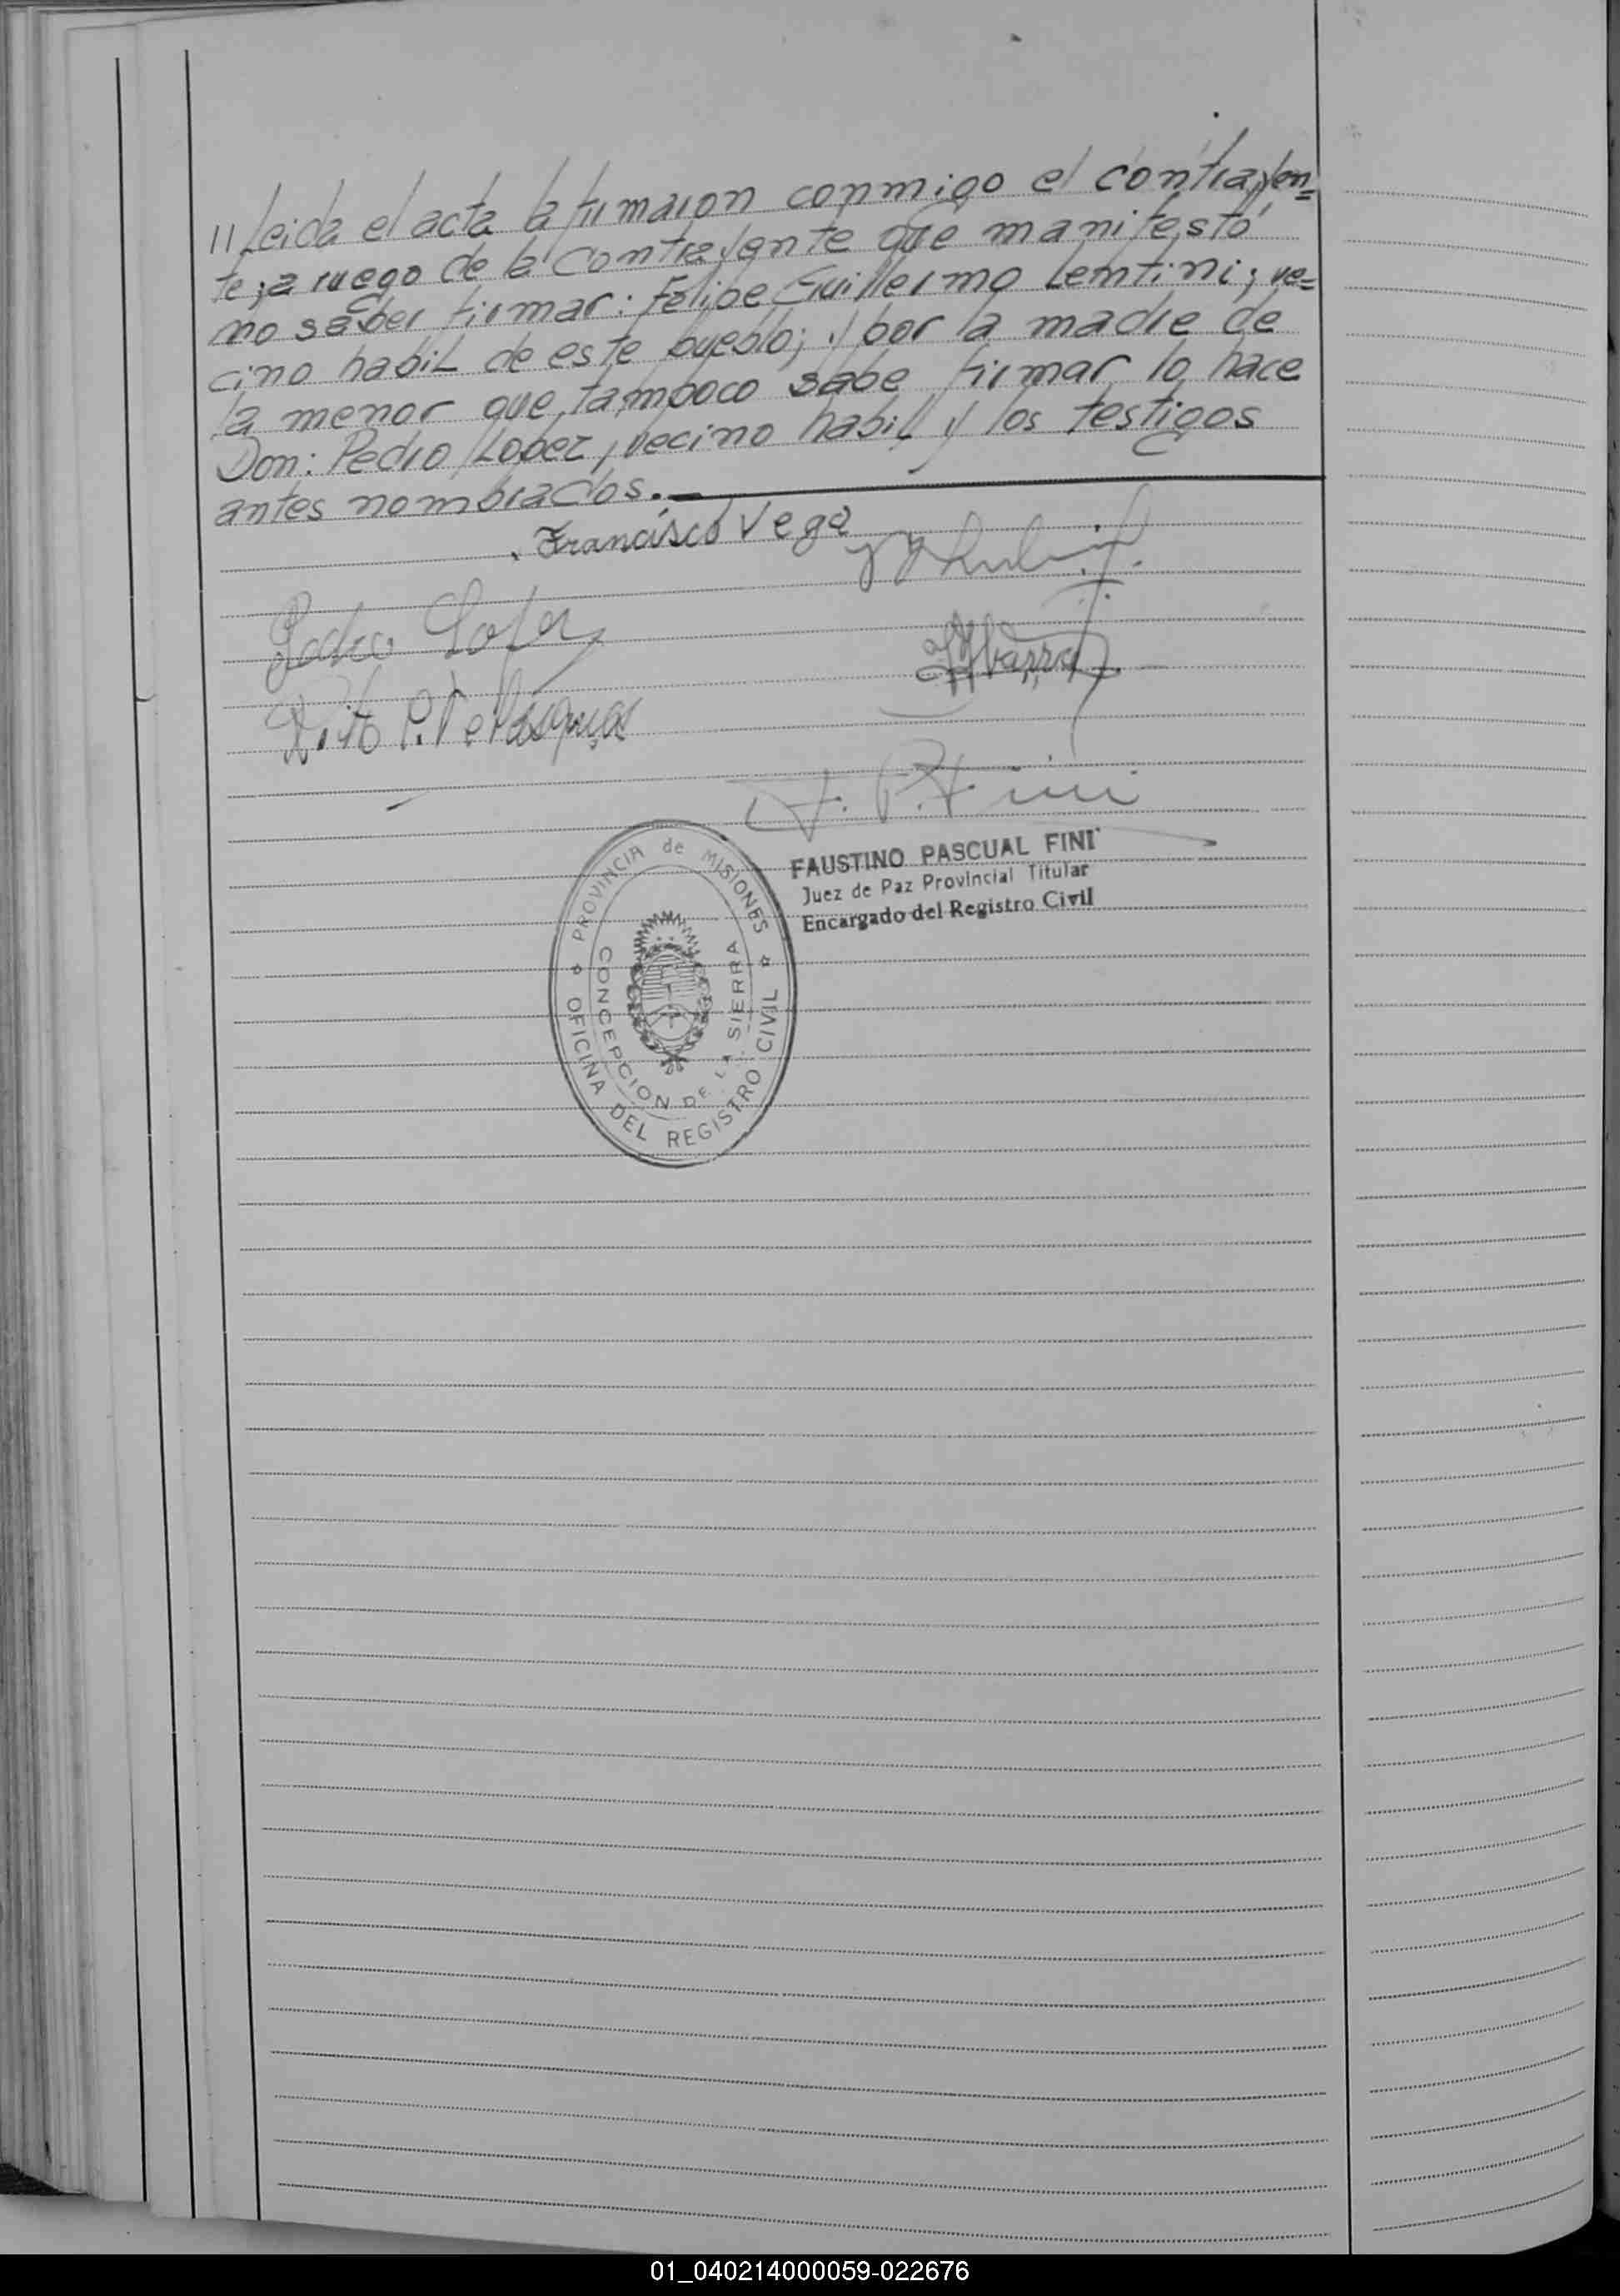 // Leida el acta la firmaron conmigo el contrayen=
te; a ruego de la contrayente que manifestó
no saber firmar: Felipe Guillermo Lentini; ve=
cino habil de este pueblo; y por la madre de
la menor que tampoco sabe firmar lo hace
Don: Pedro Lopez, vecino habil y los testigos
antes nombrados.
Francisco Vega
Pedro Lopez
Ybarra
Vito P. Velasquez
F. P. Fini
FAUSTINO PASCUAL FINI
Juez de Paz Provincial Titular
Encargado del Registro Civil
PROVINCIA de MISIONES
OFICINA DEL REGISTRO CIVIL
CONCEPCION DE LA SIERRA
01_040214000059-022676